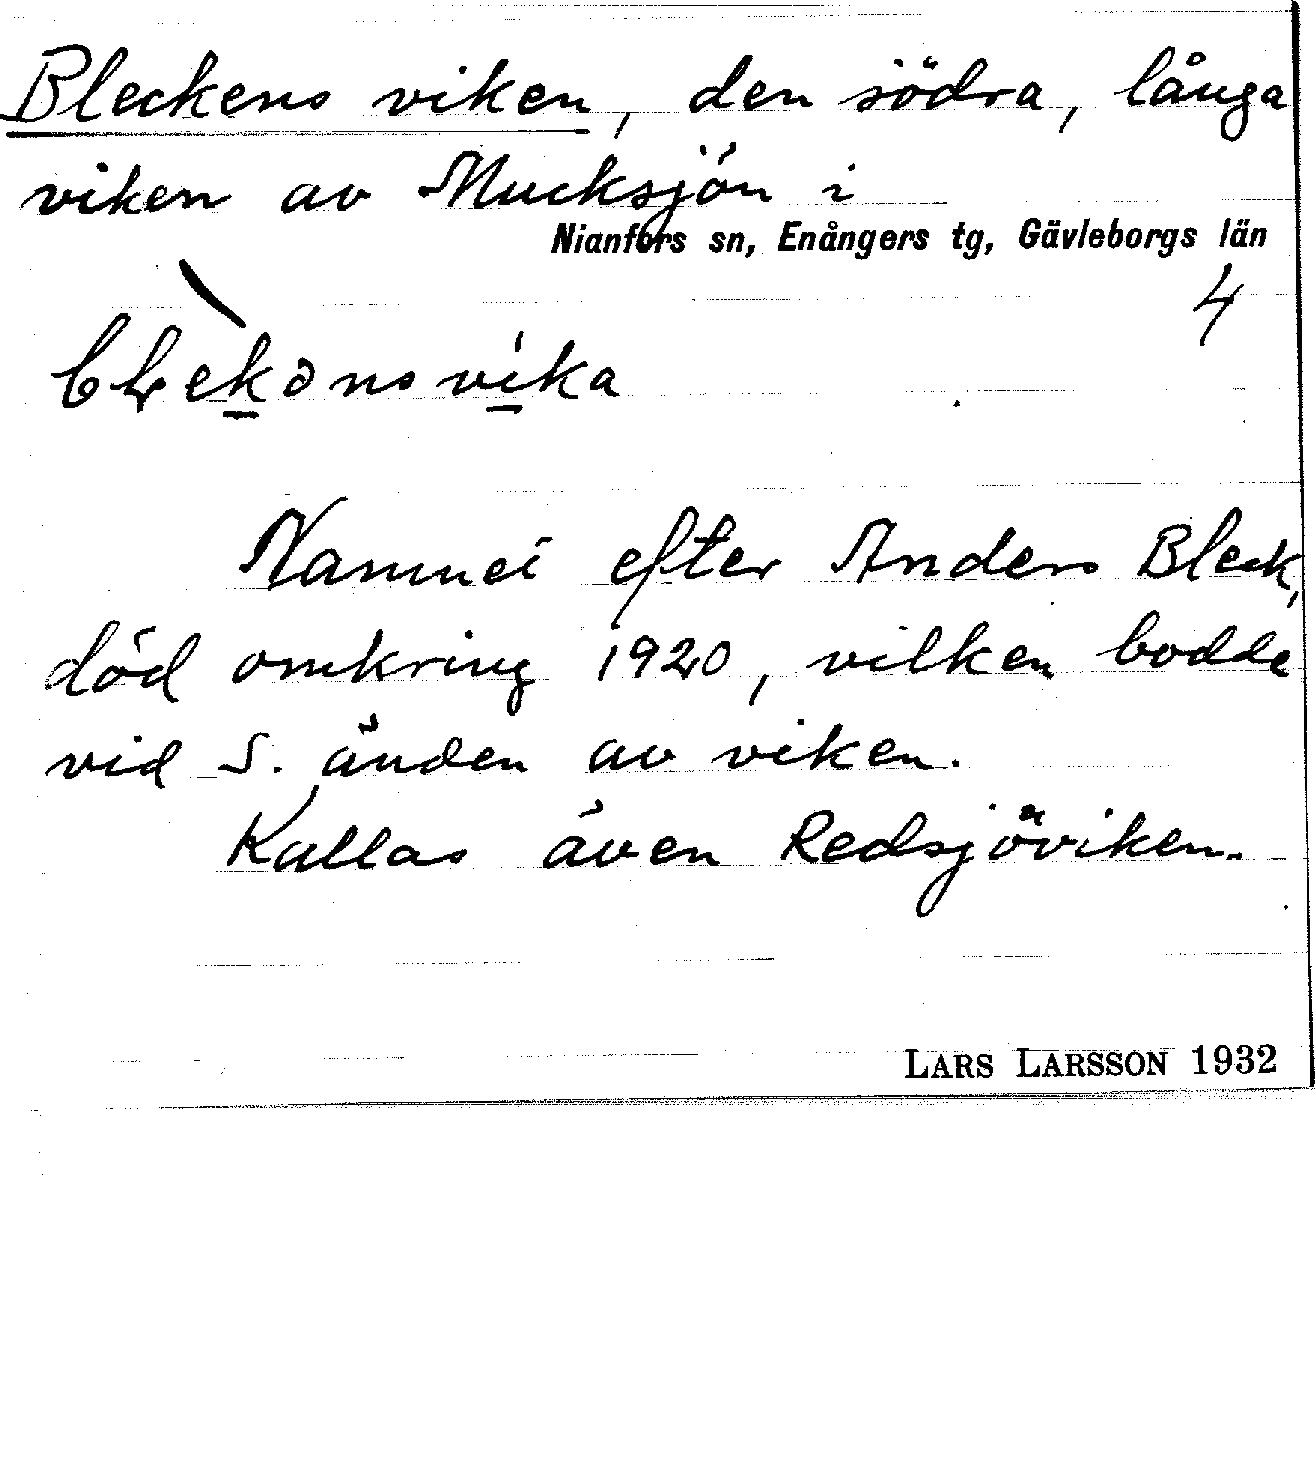 Bleckens viken, den södra, långa
viken av Mucksjön i
Nianfors sn, Enångers tg, Gävleborgs län
4
Namnet efter Anders Bleck,
död omkring 1920, vilken bodde
vid S. änden av viken.
Kallas även Redsjöviken.
LARS LARSSON 1932